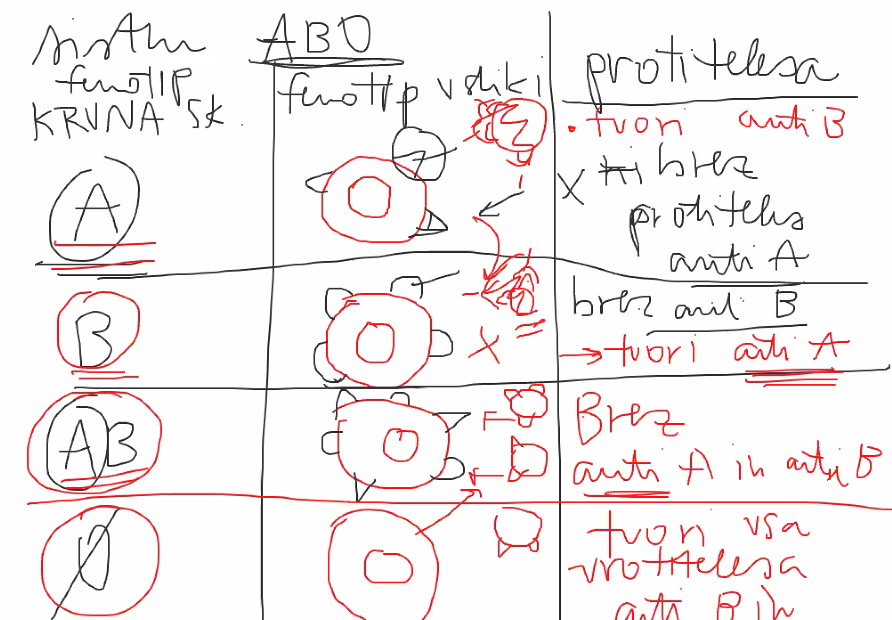 sistem ABO
fenotip
KRVNA SK.
fenotip v sliki
protitelesa
• tvori anti B
A
X brez
protiteles
anti A
B
X
brez anti B
→ tvori anti A
AB
Brez
anti A in anti B
0
tvori vsa
protitelesa
anti B in